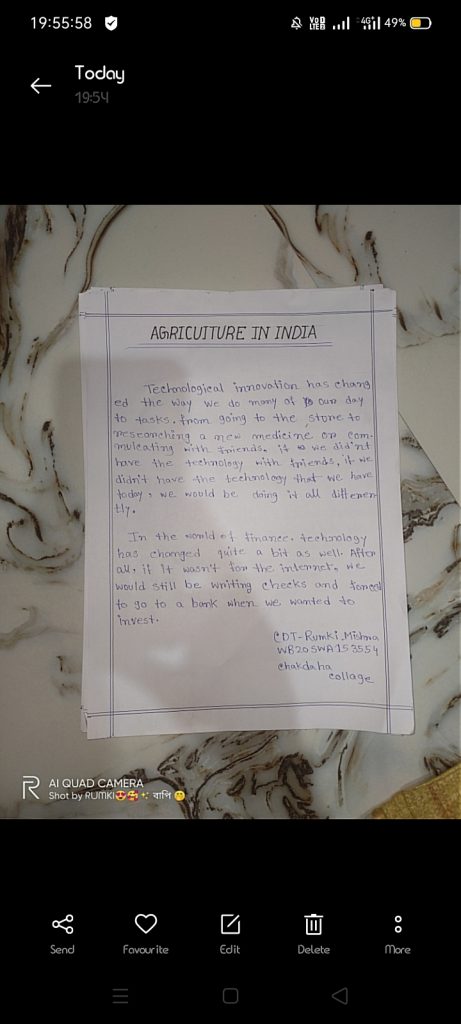 19:55:58
VoD LTE2 4G+ 49%
Today
19:54
AGRICUITURE IN INDIA
Technological innovation has chang
ed the way we do many of our day
to tasks. from going to the store to
researching a new medicine or com-
muleating with friends. if we didn't
have the technology with friends, if we
didn't have the technology that we have
today, we would be doing it all differen-
tly.
In the world of finance. technology
has changed quite a bit as well. After
all, if It wasn't for the internet, we
would still be writing checks and forced
to go to a bank when we wanted to
invest.
CDT-Rumki Mishra
WB20SWA153554
chakdaha
collage
R AI QUAD CAMERA
Shot by RUMKI😍🥰✨ বাপি 🤭
Send Favourite Edit Delete More